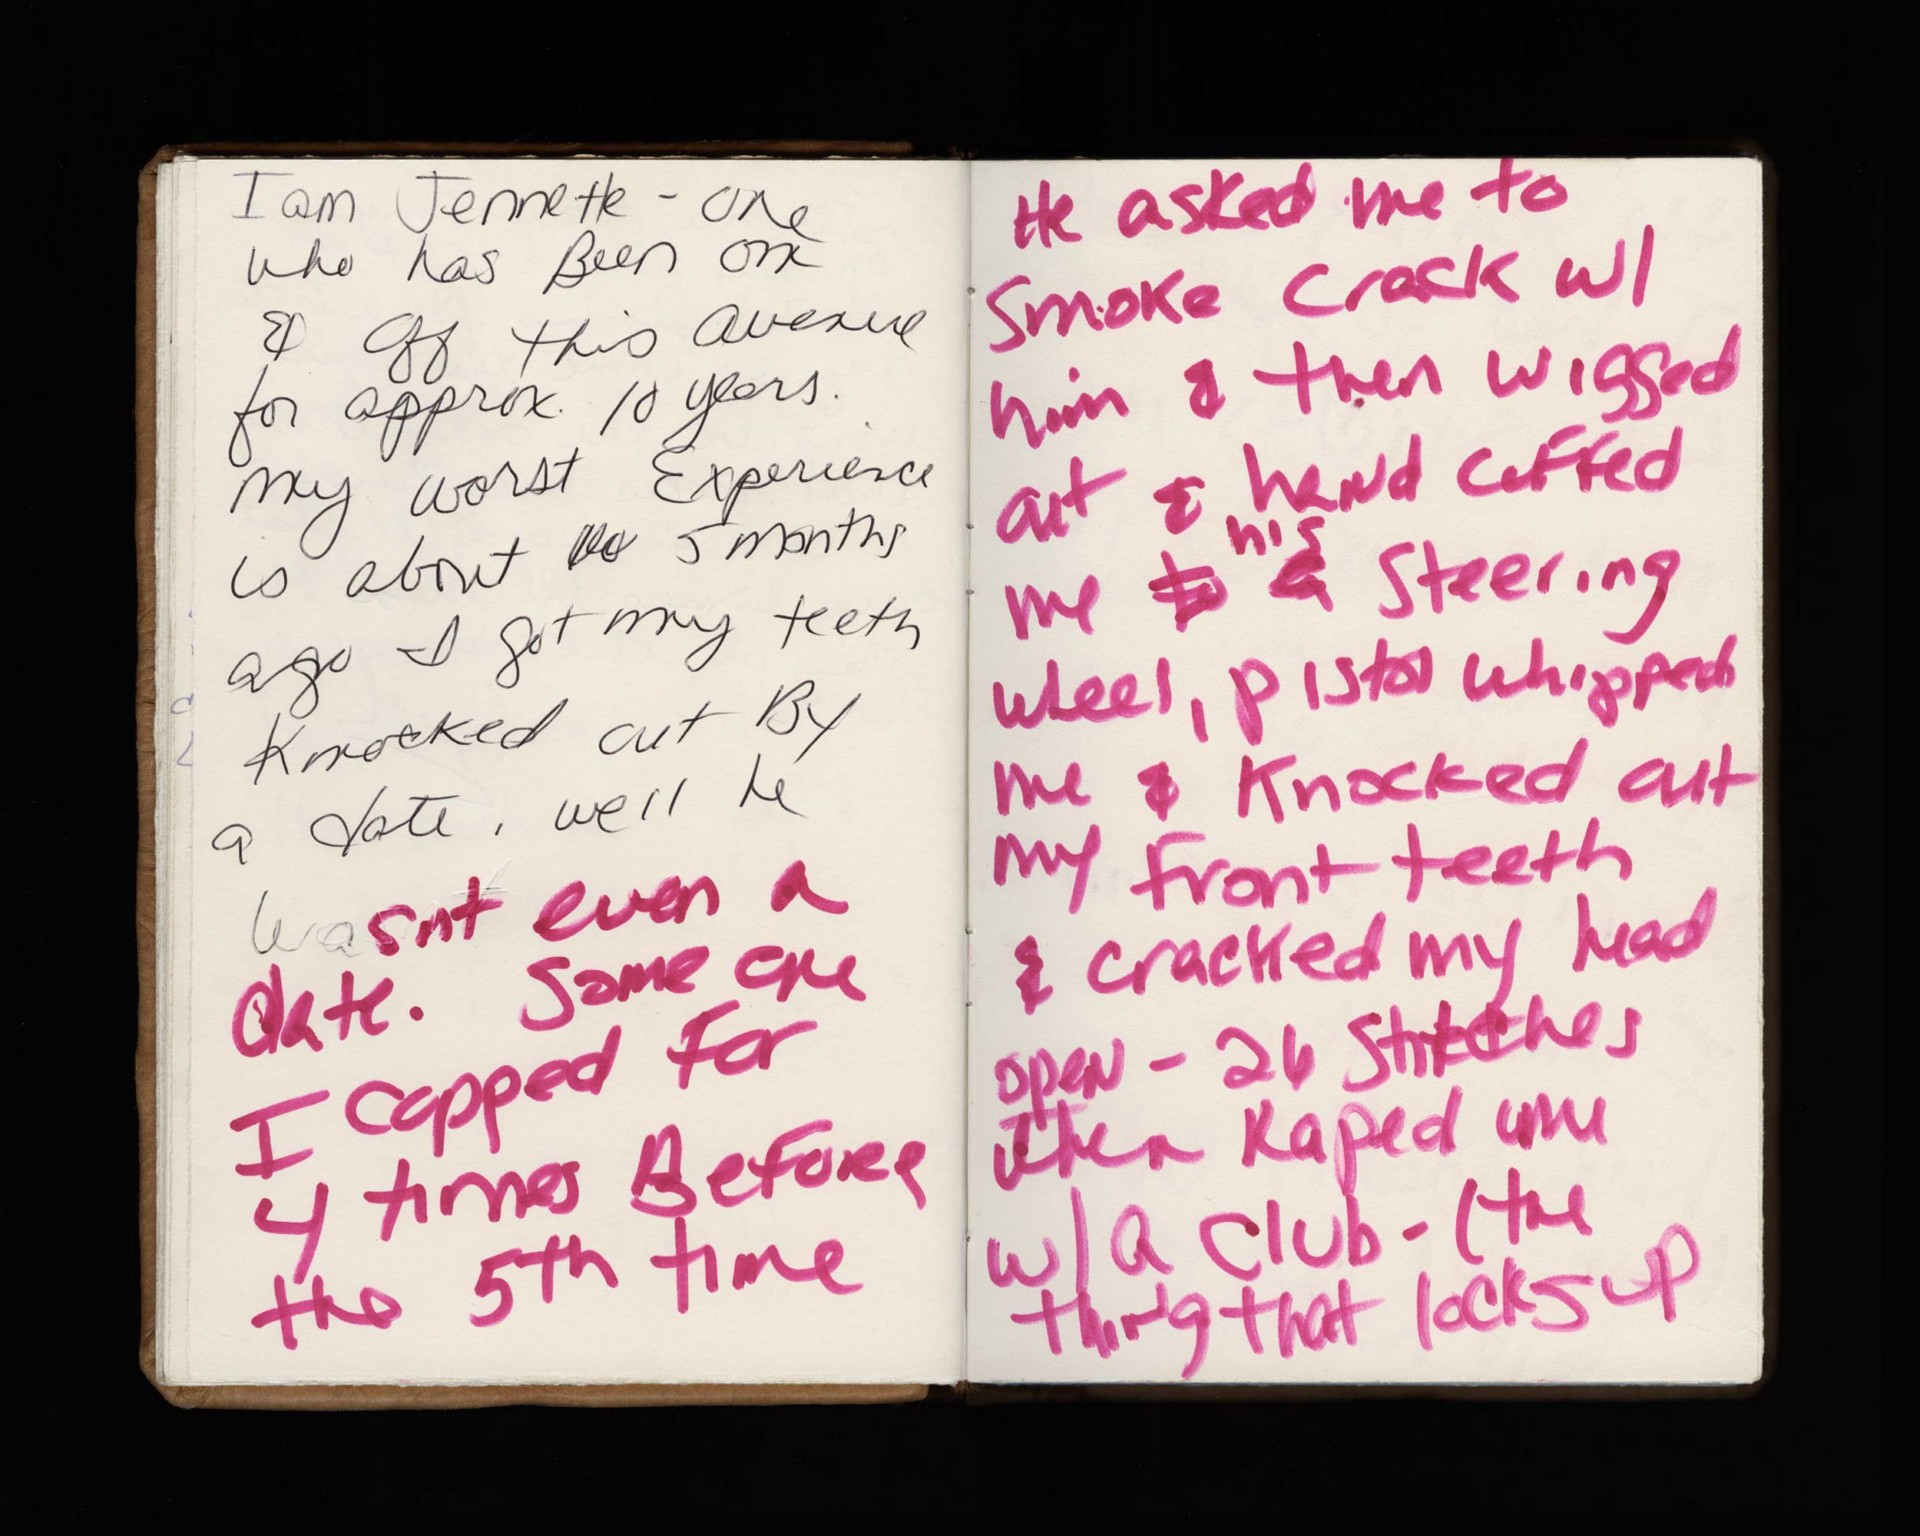 I am Jennette - one
who has Been on
& off this avenue
for approx. 10 years.
My worst Experience
is about 5 months
ago I got my teeth
Knocked out By
a date, well he
wasnt even a
date. Some one
I copped For
4 times Before
the 5th time
He asked me to
Smoke Crack w/
him & then wigged
out & hand cuffed
me to his Steering
wheel, pistol whipped
me & Knocked out
my Front teeth
& cracked my head
open - 26 Stitches
then Raped me
w/ a Club - (the
thing that locks up